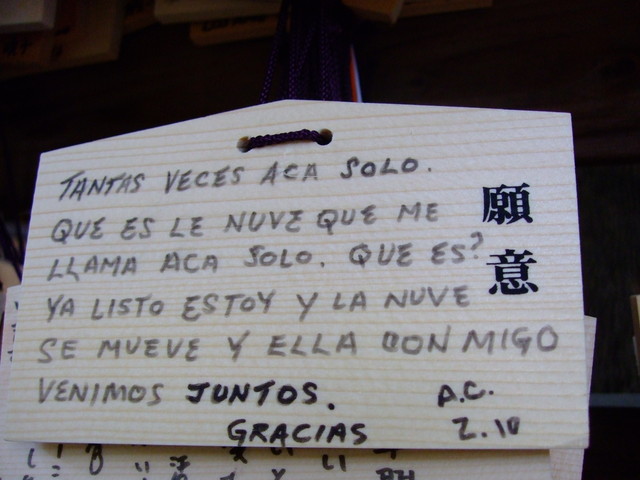 TANTAS VECES ACA SOLO.
QUE ES LE NUVE QUE ME
LLAMA ACA SOLO. QUE ES?
YA LISTO ESTOY Y LA NUVE
SE MUEVE Y ELLA CON MIGO
VENIMOS JUNTOS.
GRACIAS
A.C.
2.10
願意